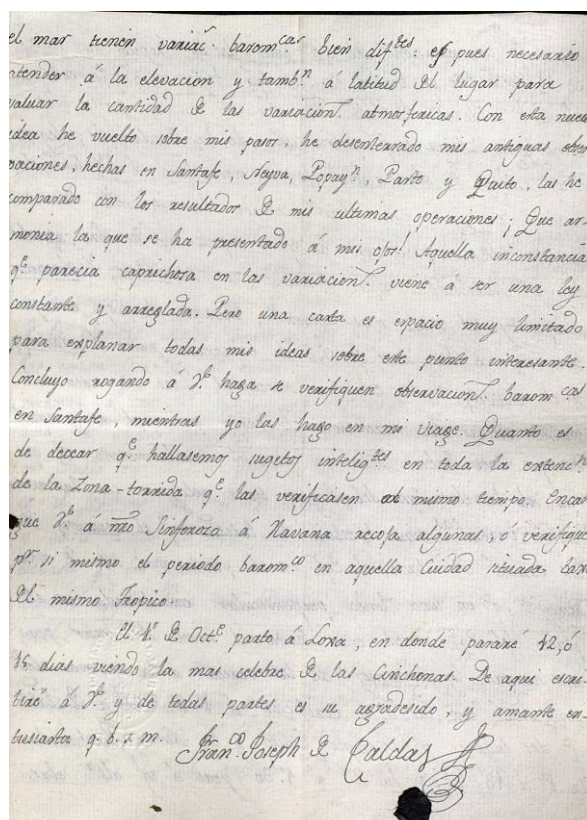 el mar tienen variac.ˢ barom.ᶜᵃˢ bien difᵗᵉˢ: es pues necesario
atender á la elevacion y tambⁿ á latitud del lugar para
valuar la cantidad de las variacionˢ atmosfericas. Con esta nueva
idea he vuelto sobre mis pasos, he desenterrado mis antiguas obser
vaciones, hechas en Santafe, Neyva, Popayⁿ, Pasto y Quito, las he
comparado con los resultados de mis ultimas operaciones ¡Que ar-
monia la que se ha presentado á mis ojos! Aquella inconstancia
qᵉ parecia caprichosa en las variacionˢ viene á ser una ley
constante y arreglada. Pero una carta es espacio muy limitado
para explanar todas mis ideas sobre este punto interesante.
Concluyo rogando á V. haga se verifiquen observacionˢ barom.ᶜᵃˢ
en Santafe, mientras yo las hago en mi viage. Quanto es
de decear qᵉ hallasemos sugetos inteligᵗᵉˢ en toda la extencⁿ
de la Zona-torrida qᵉ las verificasen al mismo tiempo. Encar
gue V. á nr̃o Sinforozo á Havana recoja algunas, ó verifique
pʳ si mismo el periodo baromᶜᵒ en aquella Ciudad situada caxi
del mismo Tropico
El 1.º de Octᵉ parto á Loxa, en donde pararé 12, ó
15 dias viendo la mas celebre de las Cinchonas. De aqui escri-
biré á V. y de todas partes es su agradesido, y amante en-
tusiasta q. b. s. m. Franᶜᵒ Joseph de Caldas